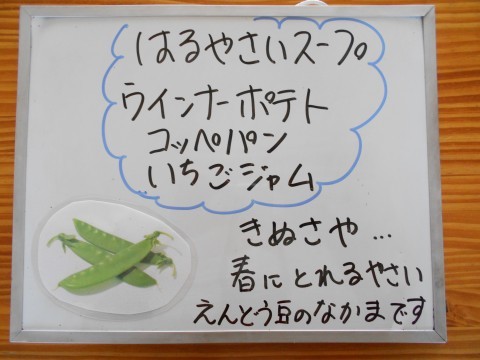 はるやさいスープ
ウインナーポテト
コッペパン
いちごジャム
きぬさや…
春にとれるやさい
えんとう豆のなかまです